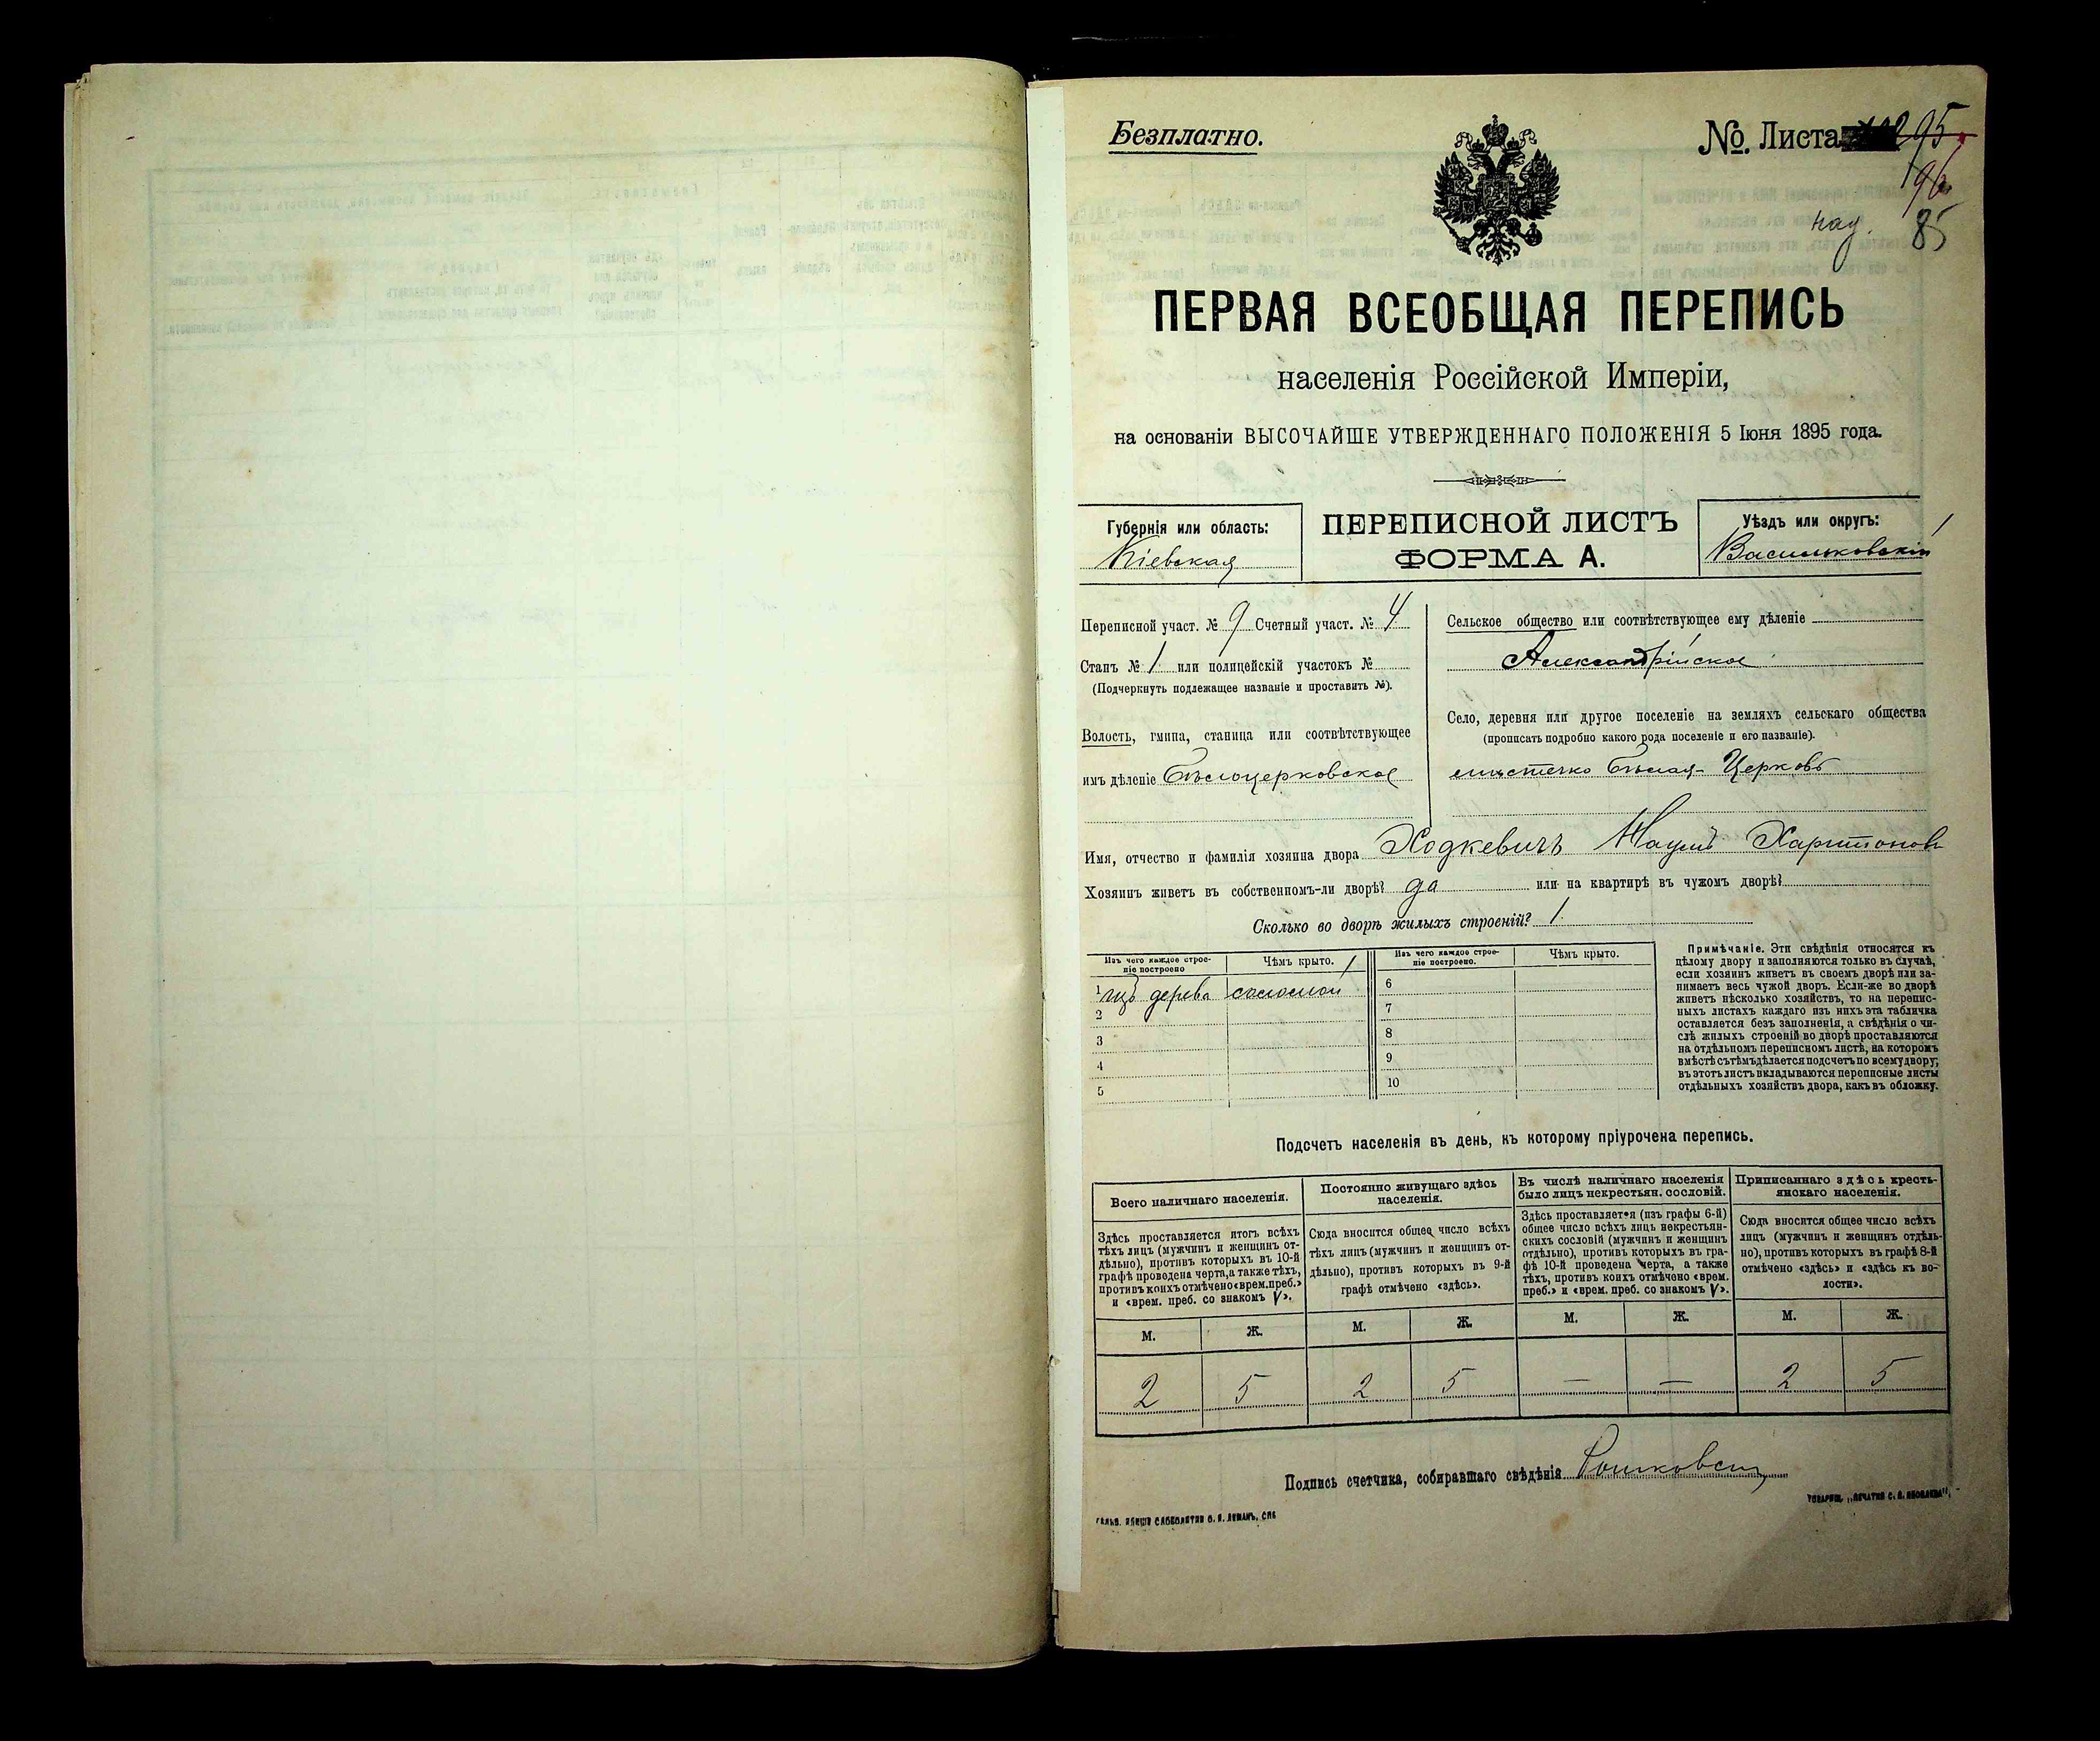 Безплатно.
№. Листа 95
96
над. 85
ПЕРВАЯ ВСЕОБЩАЯ ПЕРЕПИСЬ
населенія Россійской Имперіи,
на основаніи ВЫСОЧАЙШЕ УТВЕРЖДЕННАГО ПОЛОЖЕНІЯ 5 Іюня 1895 года.
Губернія или область:
Кіевская
ПЕРЕПИСНОЙ ЛИСТЪ
ФОРМА А.
Уѣздъ или округъ:
Васильковскій
Переписной участ. № 9 Счетный участ. № 4
Станъ № 1 или полицейскій участокъ №
(Подчеркнуть подлежащее названіе и проставить №).
Волость, гмина, станица или соотвѣтствующее
имъ дѣленіе Бѣлоцерковское
Сельское общество или соотвѣтствующее ему дѣленіе
Александрійское
Село, деревня или другое поселеніе на земляхъ сельскаго общества
(прописать подробно какого рода поселеніе и его названіе).
мѣстечко Бѣлая-Церковь
Имя, отчество и фамилія хозяина двора Ходкевичъ Наумъ Харитоновъ
Хозяинъ живетъ въ собственномъ-ли дворѣ? да или на квартирѣ въ чужомъ дворѣ?
Сколько во дворѣ жилыхъ строеній? 1
Изъ чего каждое строе-
ніе построено
Чѣмъ крыто.
Изъ чего каждое строе-
ніе построено.
Чѣмъ крыто.
1 изъ дерева соломой
2
3
4
5
6
7
8
9
10
Примѣчаніе. Эти свѣдѣнія относятся къ
цѣлому двору и заполняются только въ случаѣ,
если хозяинъ живетъ въ своемъ дворѣ или за-
нимаетъ весь чужой дворъ. Если-же во дворѣ
живетъ нѣсколько хозяйствъ, то на перепис-
ныхъ листахъ каждаго изъ нихъ эта табличка
оставляется безъ заполненія, а свѣдѣнія о чи-
слѣ жилыхъ строеній во дворѣ проставляются
на отдѣльномъ переписномъ листѣ, на которомъ
вмѣстѣ съ тѣмъ дѣлается подсчетъ по всему двору;
въ этотъ листъ вкладываются переписные листы
отдѣльныхъ хозяйствъ двора, какъ въ обложку.
Подсчетъ населенія въ день, къ которому пріурочена перепись.
Всего наличнаго населенія.
Здѣсь проставляется итогъ всѣхъ
тѣхъ лицъ (мужчинъ и женщинъ от-
дѣльно), противъ которыхъ въ 10-й
графѣ проведена черта, а также тѣхъ,
противъ коихъ отмѣчено «врем. преб.»
и «врем. преб. со знакомъ V».
Постоянно живущаго здѣсь
населенія.
Сюда вносится общее число всѣхъ
тѣхъ лицъ (мужчинъ и женщинъ от-
дѣльно), противъ которыхъ въ 9-й
графѣ отмѣчено «здѣсь».
Въ числѣ наличнаго населенія
было лицъ некрестьян. сословій.
Здѣсь проставляется (изъ графы 6-й)
общее число всѣхъ лицъ некрестьян-
скихъ сословій (мужчинъ и женщинъ
отдѣльно), противъ которыхъ въ гра-
фѣ 10-й проведена черта, а также
тѣхъ, противъ коихъ отмѣчено «врем.
преб.» и «врем. преб. со знакомъ V».
Приписаннаго здѣсь кресть-
янскаго населенія.
Сюда вносится общее число всѣхъ
лицъ (мужчинъ и женщинъ отдѣль-
но), противъ которыхъ въ графѣ 8-й
отмѣчено «здѣсь» и «здѣсь къ во-
лости».
М. Ж. М. Ж. М. Ж. М. Ж.
2 5 2 5 — — 2 5
Подпись счетчика, собиравшаго свѣдѣнія